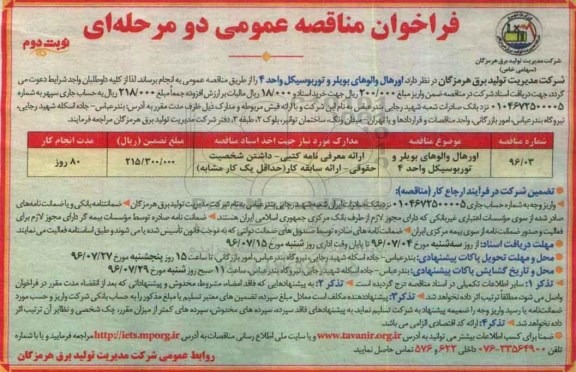 فراخوان مناقصه عمومی دو مرحله‌ای
نوبت دوم
شرکت مدیریت تولید برق هرمزگان
(سهامی خاص)
شرکت مدیریت تولید برق هرمزگان در نظر دارد، اورهال والوهای بویلر و توربوسیکل واحد ۴ را از طریق مناقصه عمومی به انجام برساند. لذا از کلیه داوطلبان واجد شرایط دعوت می
گردد، جهت دریافت اسناد شرکت در مناقصه ضمن واریز مبلغ ۲۰۰/۰۰۰ ریال جهت خرید اسناد و ۱۸/۰۰۰ ریال مالیات بر ارزش افزوده جمعاً مبلغ ۲۱۸/۰۰۰ ریال به حساب جاری سپهر به شماره
۰۱۰۴۶۷۲۵۰۰۰۵ نزد بانک صادرات شعبه شهید رجایی بندرعباس به نام این شرکت و با ارائه فیش مربوطه و مدارک ذیل ظرف مدت مقرر به آدرس: بندرعباس- جاده اسکله شهید رجایی،
نیروگاه بندرعباس، امور بازرگانی، واحد مناقصات و قراردادها و یا تهران- میدان ونک، ساختمان توانیر، بلوک ۲، طبقه ۳، دفتر شرکت مدیریت تولید برق هرمزگان مراجعه فرمایند.
شماره مناقصه	موضوع مناقصه	مدارک مورد نیاز جهت اخذ اسناد مناقصه	مبلغ تضمین (ریال)	مدت انجام کار
۹۶/۰۳	اورهال والوهای بویلر و توربوسیکل واحد ۴	ارائه معرفی نامه کتبی- داشتن شخصیت حقوقی- ارائه سابقه کار(حداقل یک کار مشابه)	۲۱۵/۳۰۰/۰۰۰	۸۰ روز
تضمین شرکت در فرایند ارجاع کار (مناقصه):
واریز وجه به شماره حساب جاری ۰۱۰۴۶۷۲۵۰۰۰۵ نزد بانک صادرات ایران شعبه شهید رجایی بندرعباس به نام شرکت مدیریت تولید برق هرمزگان ضمانتنامه بانکی و یا ضمانت‌نامه‌های
صادر شده از سوی مؤسسات اعتباری غیربانکی که دارای مجوز لازم از طرف بانک مرکزی جمهوری اسلامی ایران هستند ضمانت نامه صادره توسط مؤسسات بیمه گر دارای مجوز لازم برای
فعالیت و صدور ضمانت نامه از سوی بیمه مرکزی ایران ضمانت نامه‌های صادره توسط صندوق های ضمانت دولتی که به موجب قانون تأسیس شده یا می شوند و طبق اساسنامه فعالیت می نمایند.
مهلت دریافت اسناد: از روز سه‌شنبه مورخ ۹۶/۰۷/۰۴ تا پایان وقت اداری روز شنبه مورخ ۹۶/۰۷/۱۵
محل و مهلت تحویل پاکات پیشنهادی: بندرعباس- جاده اسکله شهید رجایی، نیروگاه بندرعباس، امور بازرگانی، تا ساعت ۱۵ روز پنجشنبه مورخ ۹۶/۰۷/۲۷
محل و تاریخ گشایش پاکات پیشنهادی: بندرعباس- جاده اسکله شهید رجایی، نیروگاه بندرعباس، ساعت ۱۱ صبح روز شنبه مورخ ۹۶/۰۷/۲۹
تذکر ۱: سایر اطلاعات تکمیلی در اسناد مناقصه درج گردیده است. تذکر ۲: به پیشنهادهایی که فاقد امضاء، مشروط، مخدوش و پیشنهاداتی که بعد از انقضاء مدت مقرر در فراخوان
واصل می شوند، مطلقاً ترتیب اثر داده نخواهد شد. تذکر ۳: پیشنهاددهنده مکلف است معادل مبلغ سپرده، تضمین های معتبر تسلیم یا مبلغ مذکور را به حساب بانکی شرکت واریز و حسب مورد
ضمانت‌نامه یا رسید واریز وجه را ضمیمه پیشنهاد به شرکت تسلیم نماید. به پیشنهادهای فاقد سپرده، سپرده های مخدوش، سپرده های کمتر از میزان مقرر، چک شخصی و نظایر آن ترتیب اثر
داده نخواهد شد. تذکر ۴: ارائه کد اقتصادی الزامی می باشد.
ضمناً برای کسب اطلاعات بیشتر می توانید به آدرس www.tavanir.org.ir و یا سایت ملی اطلاع رسانی مناقصات به آدرس http://iets.mporg.ir مراجعه فرمایید و یا با شماره
تلفن ۳۳۵۶۴۹۰۰-۰۷۶ داخلی ۶۲۳ و ۵۷۶ تماس حاصل نمایید
روابط عمومی شرکت مدیریت تولید برق هرمزگان